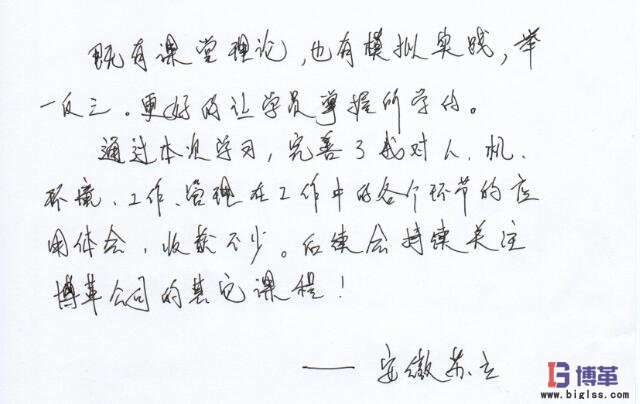 既有课堂理论，也有模拟实践，举
一反三。更好的让学员掌握所学的。
通过本次学习，完善了我对人、机、
环境、工作、管理在工作中的各个环节的应
用体会，收获不少。后续会持续关注
博革公司的其它课程！
——安徽苏立
博革
www.biglss.com